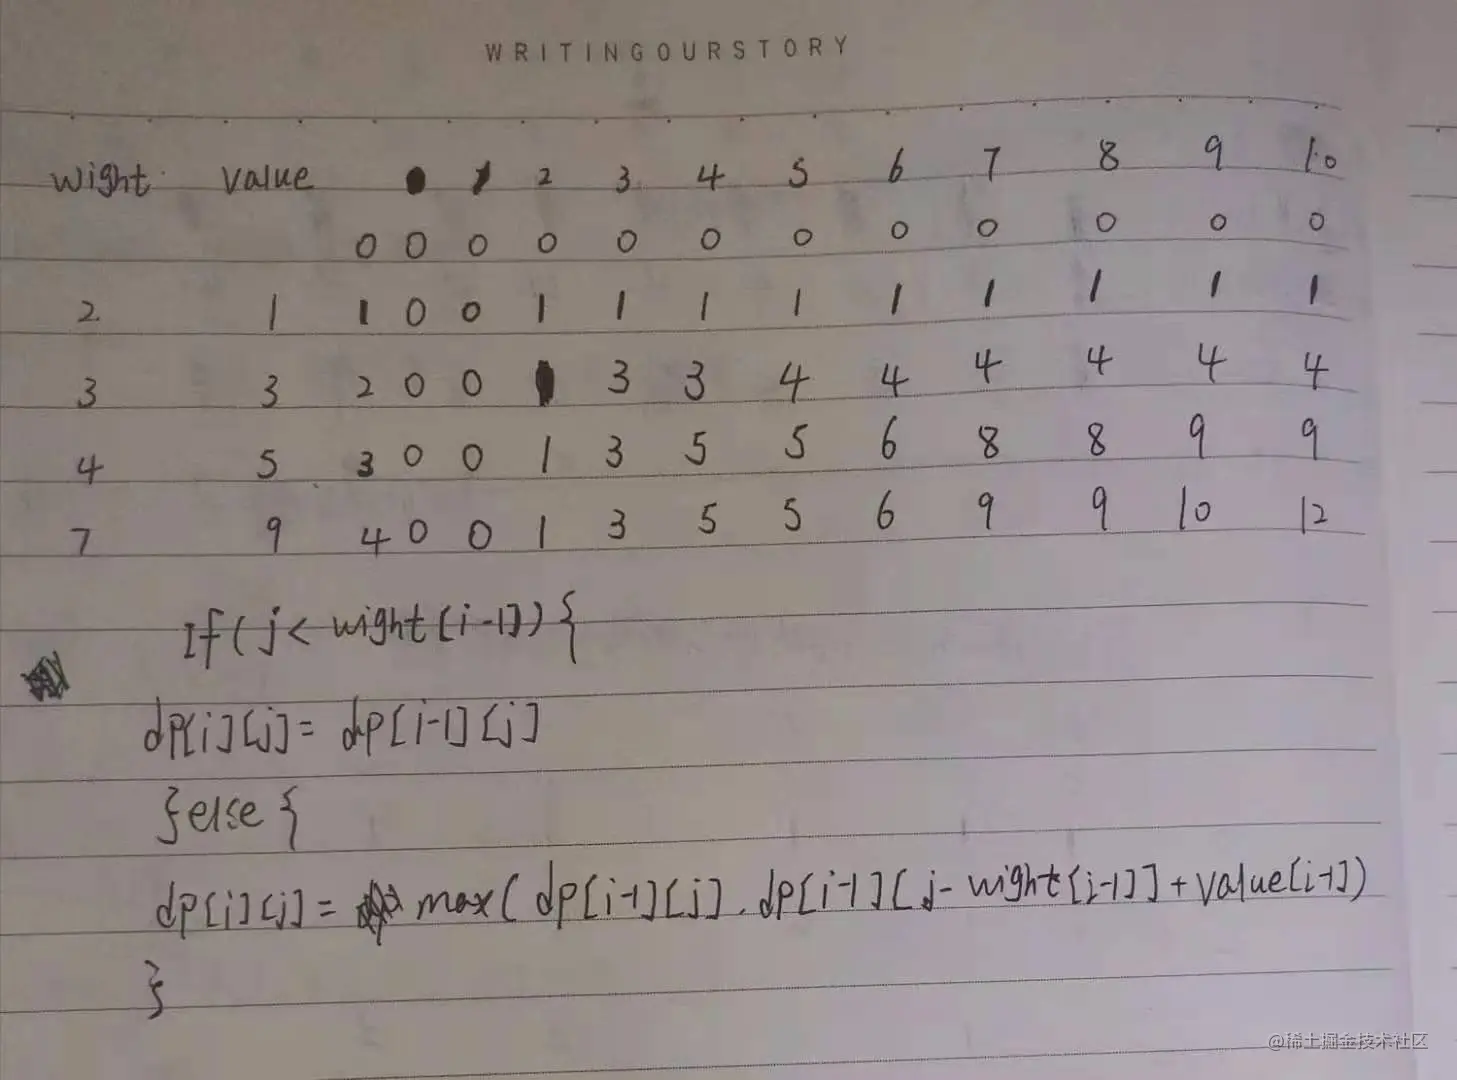 WRITINGOURSTORY
wight value 0 1 2 3 4 5 6 7 8 9 10
0 0 0 0 0 0 0 0 0 0 0 0
2 1 1 0 0 1 1 1 1 1 1 1 1 1
3 3 2 0 0 1 3 3 4 4 4 4 4 4
4 5 3 0 0 1 3 5 5 6 8 8 9 9
7 9 4 0 0 1 3 5 5 6 9 9 10 12
If(j< wight[i-1]){
dp[i][j]= dp[i-1][j]
}else{
dp[i][j]= max(dp[i-1][j].dp[i-1][j-wight[i-1]]+value[i-1])
}
@稀土掘金技术社区